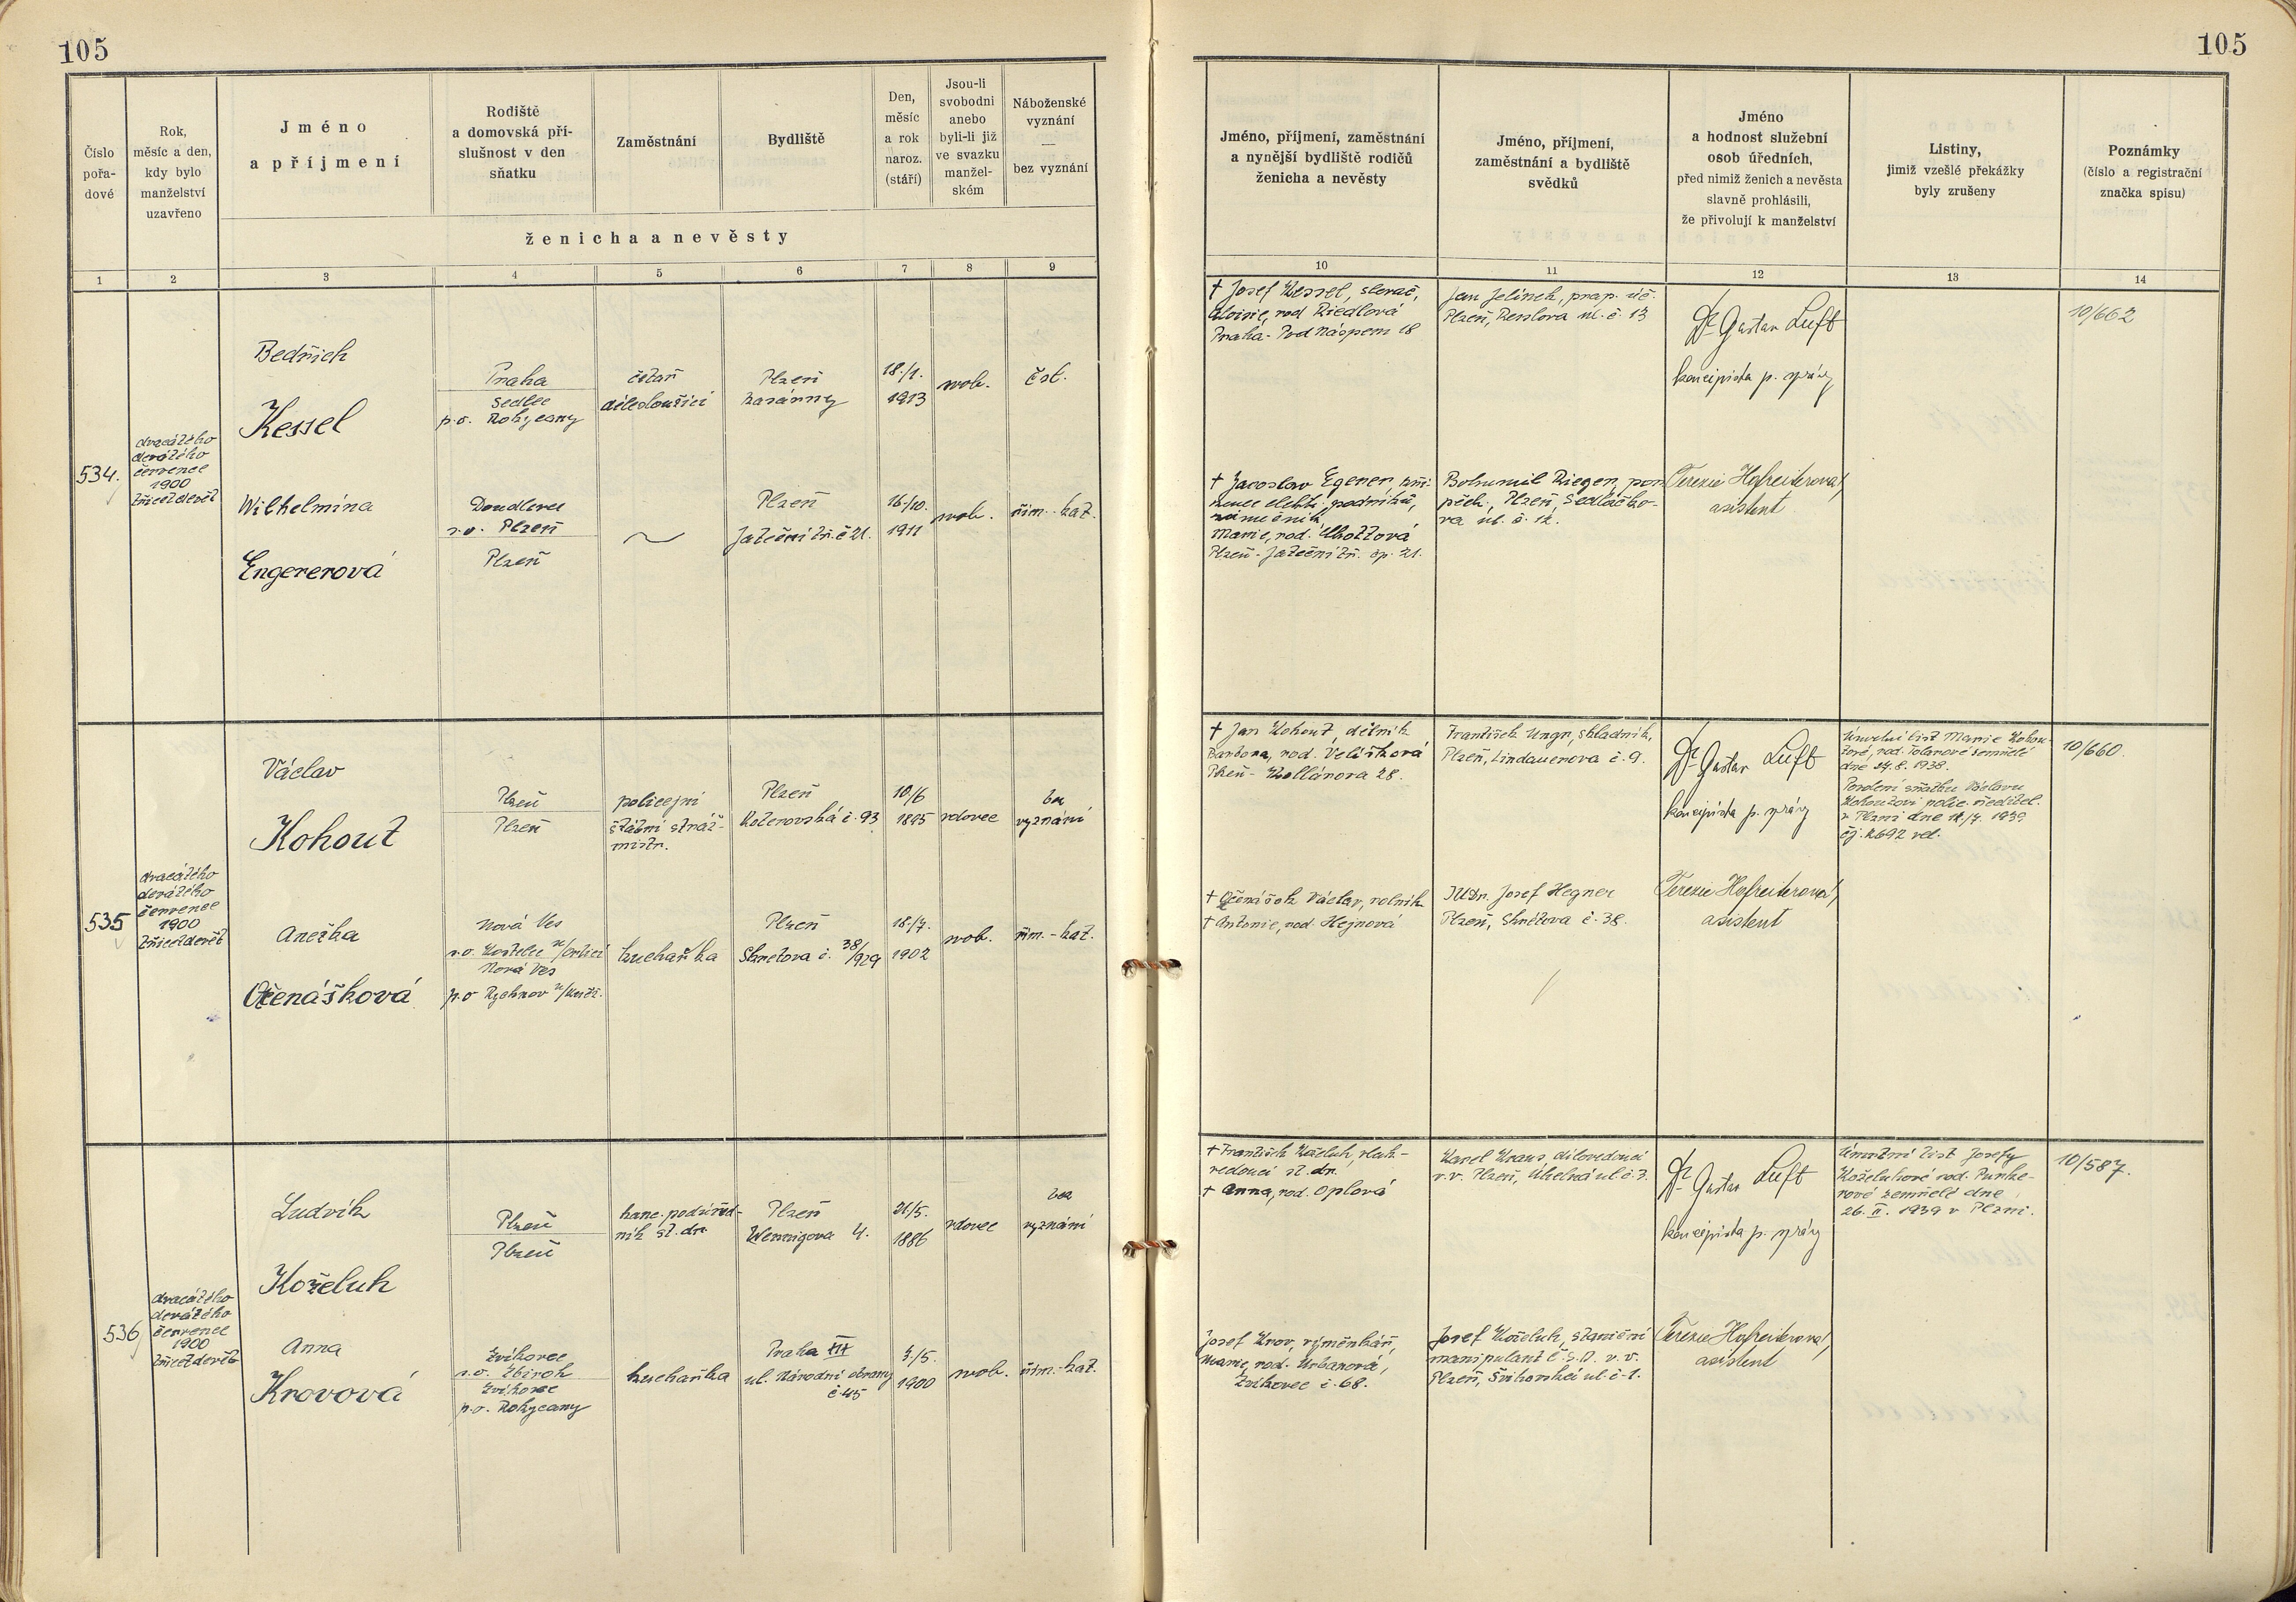 105
105
Číslo
pořa-
dové
Rok,
měsíc a den,
kdy bylo
manželství
uzavřeno
Jméno
a příjmení
Rodiště
a domovská pří-
slušnost v den
sňatku
Zaměstnání
Bydliště
Den,
měsíc
a rok
naroz.
(stáří)
Jsou-li
svobodni
anebo
byli-li již
ve svazku
manžel-
ském
Náboženské
vyznání
—
bez vyznání
ženicha a nevěsty
Jméno, příjmení, zaměstnání
a nynější bydliště rodičů
ženicha a nevěsty
Jméno, příjmení,
zaměstnání a bydliště
svědků
Jméno
a hodnost služební
osob úředních,
před nimiž ženich a nevěsta
slavně prohlásili,
že přivolují k manželství
Listiny,
jimiž vzešlé překážky
byly zrušeny
Poznámky
(číslo a registrační
značka spisu)
1 2 3 4 5 6 7 8 9 10 11 12 13 14
534.
dvacátého
devátého
července
1900
třicetdevět
Bedřich
Kessel
Praha
Sedlec
p.o. Rokycany
četař
délesloužící
Plzeň
kasárny
18./1.
1913
svob.
čsl.
† Josef Kessel, slevač,
Aloisie, rod Riedlová
Praha - Pod Náspem 18
Jan Jelínek, prap.
Plzeň, Resslova ul. č. 13
Dr Gustav Luft
koncipista p. správy
10/662
Wilhelmina
Engererová
Doudlevce
s.o. Plzeň
Plzeň
Plzeň
Jateční tř. č 21.
16./10.
1911
svob.
řím.-kat.
† Jaroslav Egerer,
elektr. podniků,
Marie, rod.
Plzeň - Jateční tř. čp. 21.
Bohumil Rieger,
Plzeň, Sedláčko-
va ul. č. 12.
Terezie Hofreiterová,
asistent
535
dvacátého
devátého
července
1900
třicetdevět
Václav
Kohout
Plzeň
Plzeň
policejní
štábní stráž-
mistr.
Plzeň
Koterovská č. 93
10./6
1895
vdovec
bez
vyznání
† Jan Kohout, dělník
Barbora, rod. Velíšková
Plzeň - Kollárova 28.
František Ungr, skladník,
Plzeň, Lindauerova č. 9.
Dr Gustav Luft
koncipista p. správy
Úmrtní list Marie Kohou-
tové, rod. Tolarové zemřelé
dne 27. 8. 1938.
Povolení sňatku Václavu
Kohoutovi polic. ředitel.
v Plzni dne 1939
10/660.
Anežka
Očenášková
Nová Ves
s.o. Kostelec n/Orlicí
Nová Ves
p.o Rychnov n/Kněž.
kuchařka
Plzeň
Skretova č. 38/929
18./7.
1902
svob.
řím.-kat.
† Očenášek Václav, rolník
† Antonie, rod. Hejnová
JUDr. Josef Hegner
Plzeň, Skrétova č. 38.
Terezie Hofreiterová,
asistent
536
dvacátého
devátého
července
1900
třicetdevět
Ludvík
Koželuh
Plzeň
Plzeň
kanc. podúřed-
ník st. dr.
Plzeň
Wenzigova 4.
21/5.
1886
vdovec
bez
vyznání
† František Koželuh, vlak-
vedoucí st. dr.
† Anna, rod. Oplová
Karel Kraus, dílovedoucí
v.v. Plzeň, Úhelná ul. č. 3.
Dr Gustav Luft
koncipista p. správy
Úmrtní list Josefy
Koželuhové rod. Punke-
rové zemřelé dne
26. II. 1939 v Plzni.
10/587.
Anna
Krovová
Zvíkovec
s.o. Zbiroh
Zvíkovec
p.o. Rokycany
kuchařka
Praha XIX
ul. Národní obrany
č 45
3./5.
1900
svob.
řím.-kat.
Josef Krov, výměnkář,
Marie, rod. Urbanová,
Zvíkovec č. 68.
Josef Koželuh, staniční
manipulant č.s.d. v.v.
Plzeň, Švihovská ul. č. 1.
Terezie Hofreiterová,
asistent